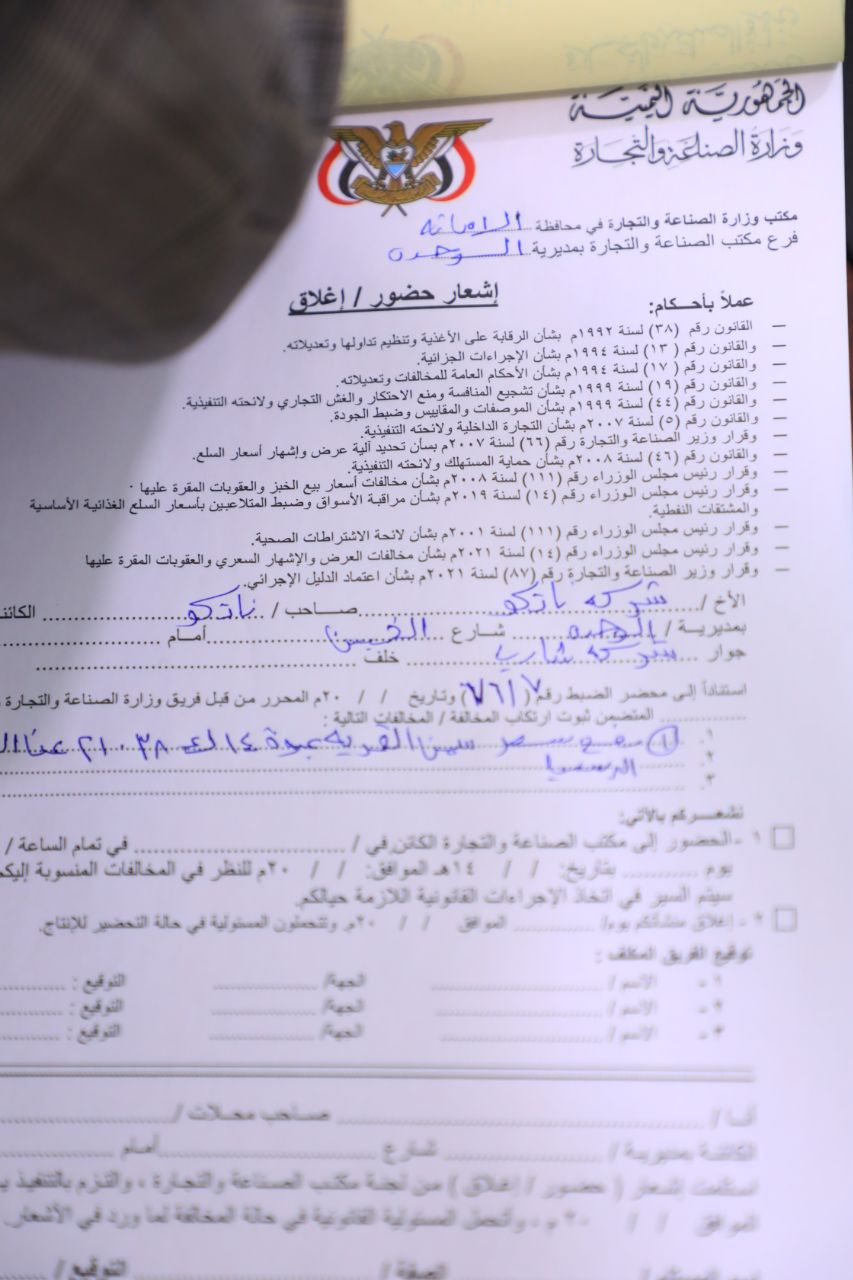 الجمهورية اليمنية
وزارة الصناعة والتجارة
مكتب وزارة الصناعة والتجارة في محافظة الامانه
فرع مكتب الصناعة والتجارة بمديرية الوحده
إشعار حضور / إغلاق
عملاً بأحكام:
— القانون رقم (٣٨) لسنة ١٩٩٢م بشأن الرقابة على الأغذية وتنظيم تداولها وتعديلاته.
— والقانون رقم (١٣) لسنة ١٩٩٤م بشأن الإجراءات الجزائية.
— والقانون رقم (١٧) لسنة ١٩٩٤م بشأن الأحكام العامة للمخالفات وتعديلاته.
— والقانون رقم (١٩) لسنة ١٩٩٩م بشأن تشجيع المنافسة ومنع الاحتكار والغش التجاري ولائحته التنفيذية.
— والقانون رقم (٤٤) لسنة ١٩٩٩م بشأن المواصفات والمقاييس وضبط الجودة.
— والقانون رقم (٥) لسنة ٢٠٠٧م بشأن التجارة الداخلية ولائحته التنفيذية.
— وقرار وزير الصناعة والتجارة رقم (٦٦) لسنة ٢٠٠٧م بسأن تحديد آلية عرض وإشهار أسعار السلع.
— والقانون رقم (٤٦) لسنة ٢٠٠٨م بشأن حماية المستهلك ولائحته التنفيذية.
— وقرار رئيس مجلس الوزراء رقم (١١١) لسنة ٢٠٠٨م بشأن مخالفات أسعار بيع الخبز والعقوبات المقرة عليها .
— وقرار رئيس مجلس الوزراء رقم (١٤) لسنة ٢٠١٩م بشأن مراقبة الأسواق وضبط المتلاعبين بأسعار السلع الغذائية الأساسية
والمشتقات النفطية.
— وقرار رئيس مجلس الوزراء رقم (١١١) لسنة ٢٠٠١م بشأن لائحة الاشتراطات الصحية.
— وقرار رئيس مجلس الوزراء رقم (١٤) لسنة ٢٠٢١م بشأن مخالفات العرض والإشهار السعري والعقوبات المقرة عليها
— وقرار وزير الصناعة والتجارة رقم (٨٧) لسنة ٢٠٢١م بشأن اعتماد الدليل الإجرائي.
الأخ / شركه ناتكو صاحب / ناتكو الكائنة
بمديرية / الوحده شارع أمام
جوار شركه خلف
استناداً إلى محضر الضبط رقم ( ) وتاريخ / / ٢٠م المحرر من قبل فريق وزارة الصناعة والتجارة
المتضمن ثبوت ارتكاب المخالفة / المخالفات التالية :
١. سعر سمن القريه
٢.
٣.
نشعركم بالآتي:
١ - الحضور إلى مكتب الصناعة والتجارة الكائن في / في تمام الساعة /
يوم بتاريخ: / / ١٤هـ الموافق: / / ٢٠م للنظر في المخالفات المنسوبة إليكم
سيتم السير في اتخاذ الإجراءات القانونية اللازمة حيالكم.
٢ - إغلاق منشأتكم يوم/ الموافق / / ٢٠م. وتتحملون المسئولية في حالة التحضير للإنتاج.
توقيع الفريق المكلف :
١ - الاسم / الجهة/ التوقيع :
٢ - الاسم / الجهة/ التوقيع :
٣ - الاسم / الجهة/ التوقيع :
أنا / صاحب محلات /
الكائنة بمديرية / شارع أمام
استلمت إشعار ( حضور / إغلاق ) من لجنة مكتب الصناعة والتجارة ، والتزم بالتنفيذ
الموافق / / ٢٠م ، وأتحمل المسئولية القانونية في حالة المخالفة لما ورد في الأشعار.
الصفة / التوقيع /